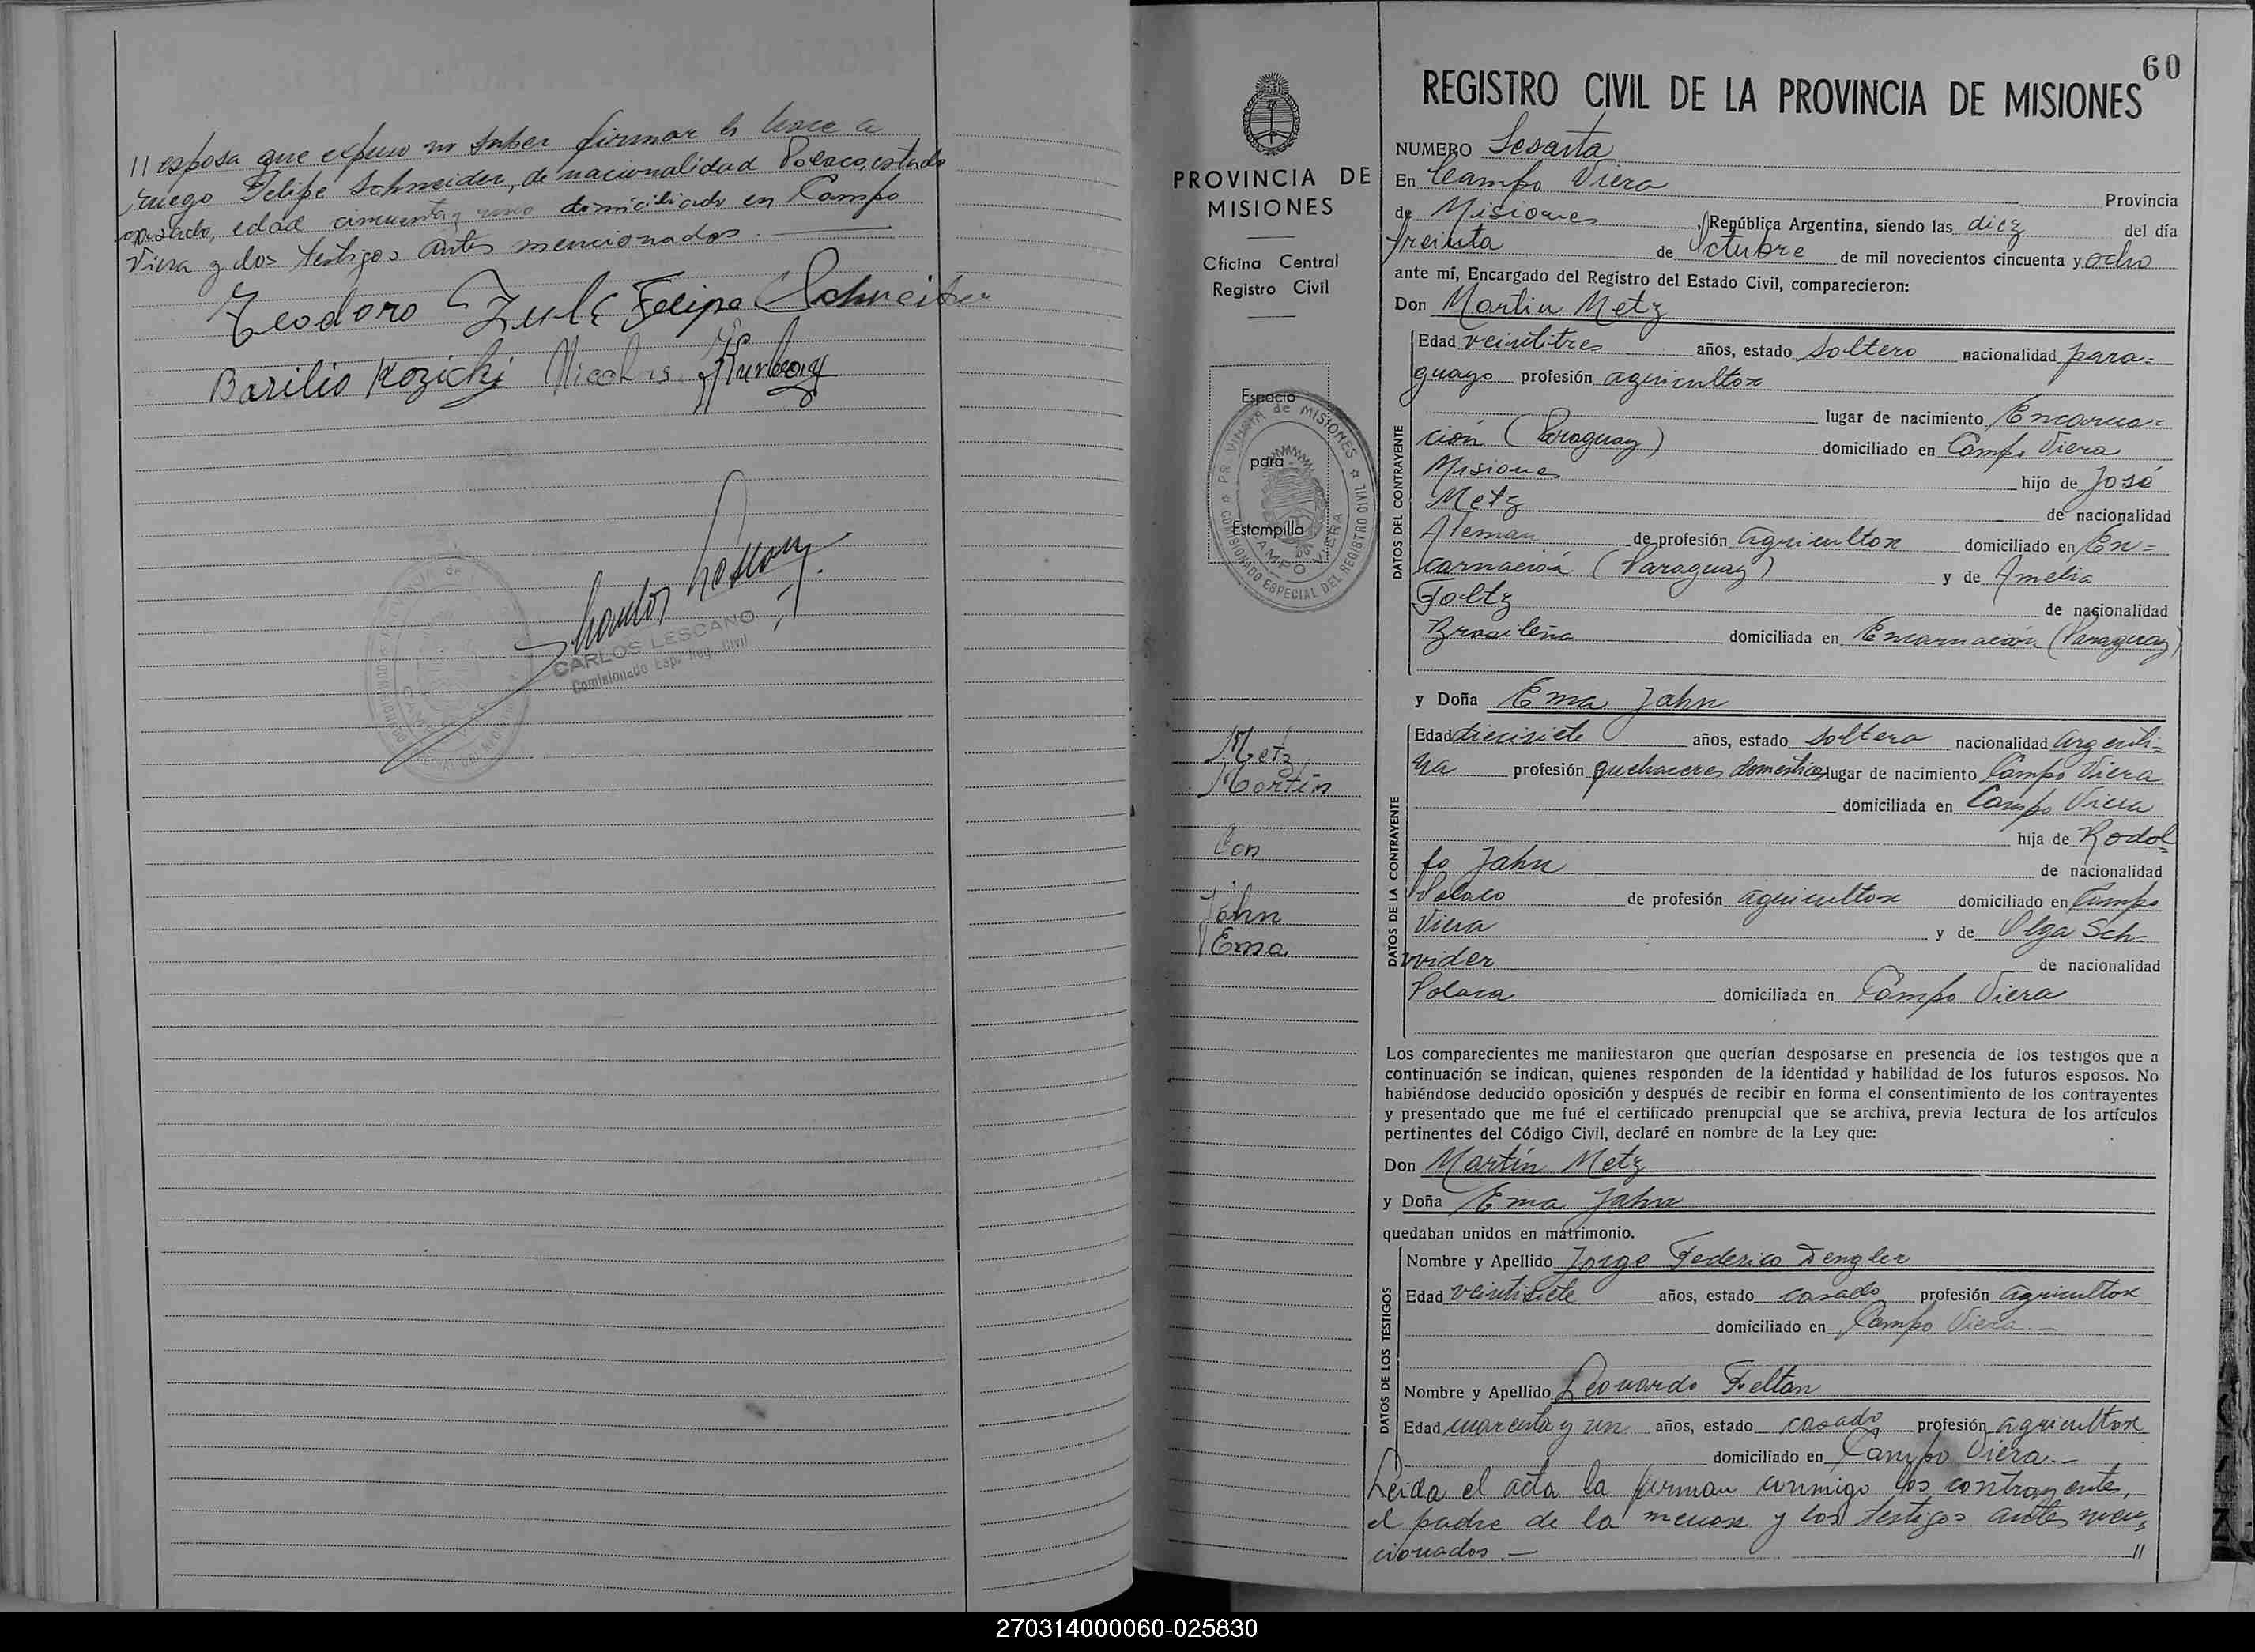 // esposa que expuso no saber firmar lo hace a
ruego Felipe Schneider, de nacionalidad Polaco, estado
casado, edad cincuenta y uno domiciliado en Campo
Viera y los testigos antes mencionados.
Teodoro Zulc Felipe Schneider
Basilio Kozicki Nicolas
CARLOS LESCANO
Comisionado Esp. Reg. Civil
60
PROVINCIA DE
MISIONES
Oficina Central
Registro Civil
Espacio
para
Estampilla
PROVINCIA de MISIONES
COMISIONADO ESPECIAL DEL REGISTRO CIVIL
CAMPO VIERA
Metz
Martín
Con
Jahn
Ema.
REGISTRO CIVIL DE LA PROVINCIA DE MISIONES
NUMERO Sesenta
En Campo Viera Provincia
de Misiones, República Argentina, siendo las diez del día
treinta de Octubre de mil novecientos cincuenta y ocho
ante mí, Encargado del Registro del Estado Civil, comparecieron:
Don Martin Metz
DATOS DEL CONTRAYENTE
Edad veintitres años, estado soltero nacionalidad para=
guayo profesión agricultor
lugar de nacimiento Encarna=
ción (Paraguay) domiciliado en Campo Viera
Misiones hijo de José
Metz de nacionalidad
Aleman de profesión agricultor domiciliado en En=
carnación (Paraguay) y de Amelia
Foltz de nacionalidad
Brasileña domiciliada en Encarnación (Paraguay)
y Doña Ema Jahn
DATOS DE LA CONTRAYENTE
Edad diecisiete años, estado soltera nacionalidad Argenti=
na profesión quehaceres domesticos lugar de nacimiento Campo Viera
domiciliada en Campo Viera
hija de Rodol=
fo Jahn de nacionalidad
Polaco de profesión agricultor domiciliado en Campo
Viera y de Olga Sch=
nider de nacionalidad
Polaca domiciliada en Campo Viera
Los comparecientes me manifestaron que querían desposarse en presencia de los testigos que a
continuación se indican, quienes responden de la identidad y habilidad de los futuros esposos. No
habiéndose deducido oposición y después de recibir en forma el consentimiento de los contrayentes
y presentado que me fué el certificado prenupcial que se archiva, previa lectura de los artículos
pertinentes del Código Civil, declaré en nombre de la Ley que:
Don Martín Metz
y Doña Ema Jahn
quedaban unidos en matrimonio.
DATOS DE LOS TESTIGOS
Nombre y Apellido Jorge Federico Dengler
Edad veintisiete años, estado casado profesión agricultor
domiciliado en Campo Viera
Nombre y Apellido Leonardo Feltan
Edad cuarenta y un años, estado casado profesión agricultor
domiciliado en Campo Viera.-
Leída el acta la firman conmigo los contrayentes,
el padre de la menor y los testigos antes men=
cionados.- //
270314000060-025830